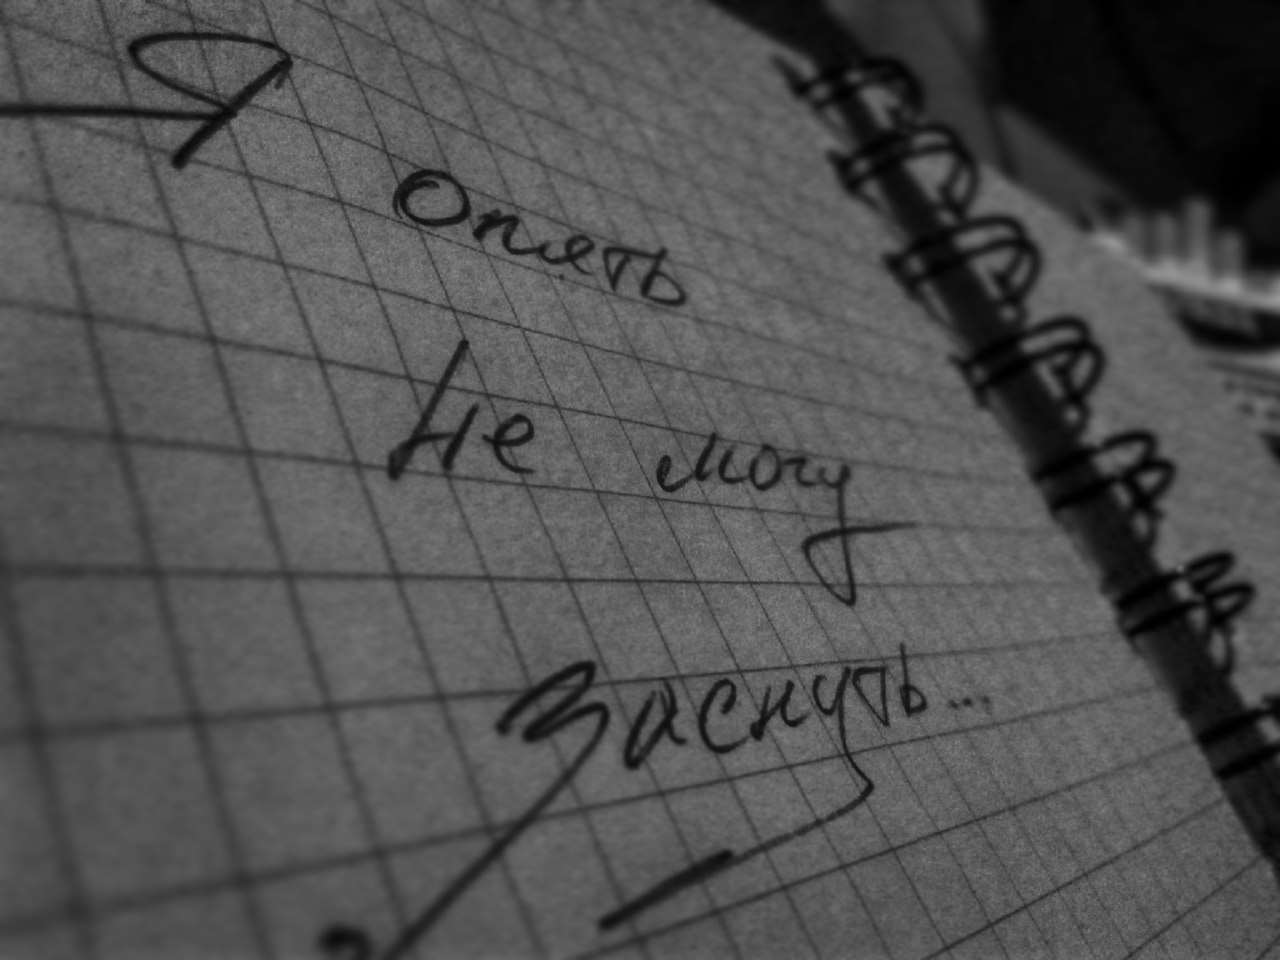 Я
опять
не могу
заснуть...